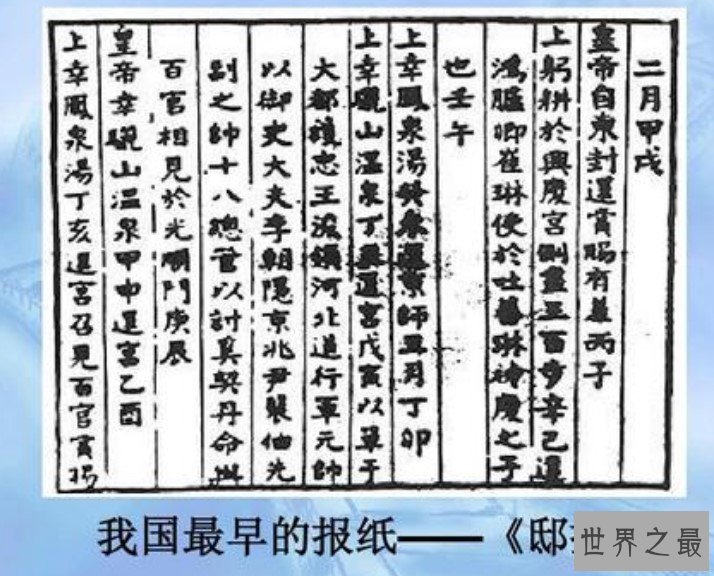 二月甲戌
皇帝自東封還賞賜有差丙子
上躬耕於興慶宮側盡三百步辛巳遣
鴻臚卿崔琳使於吐蕃琳神慶之子
也壬午
上幸鳳泉湯癸未還京師五月丁卯
上幸驪山溫泉丁 還宮戊寅以單于
大都護忠王 領河北道行軍元帥
以御史大夫李朝隱京兆尹裴伷先
副之帥十八總管以討奚契丹命與
百官相見於光順門庚辰
皇帝幸驪山溫泉甲申還宮乙酉
上幸鳳泉湯丁亥還宮召見百官賞賜
我国最早的报纸——《邸
世界之最